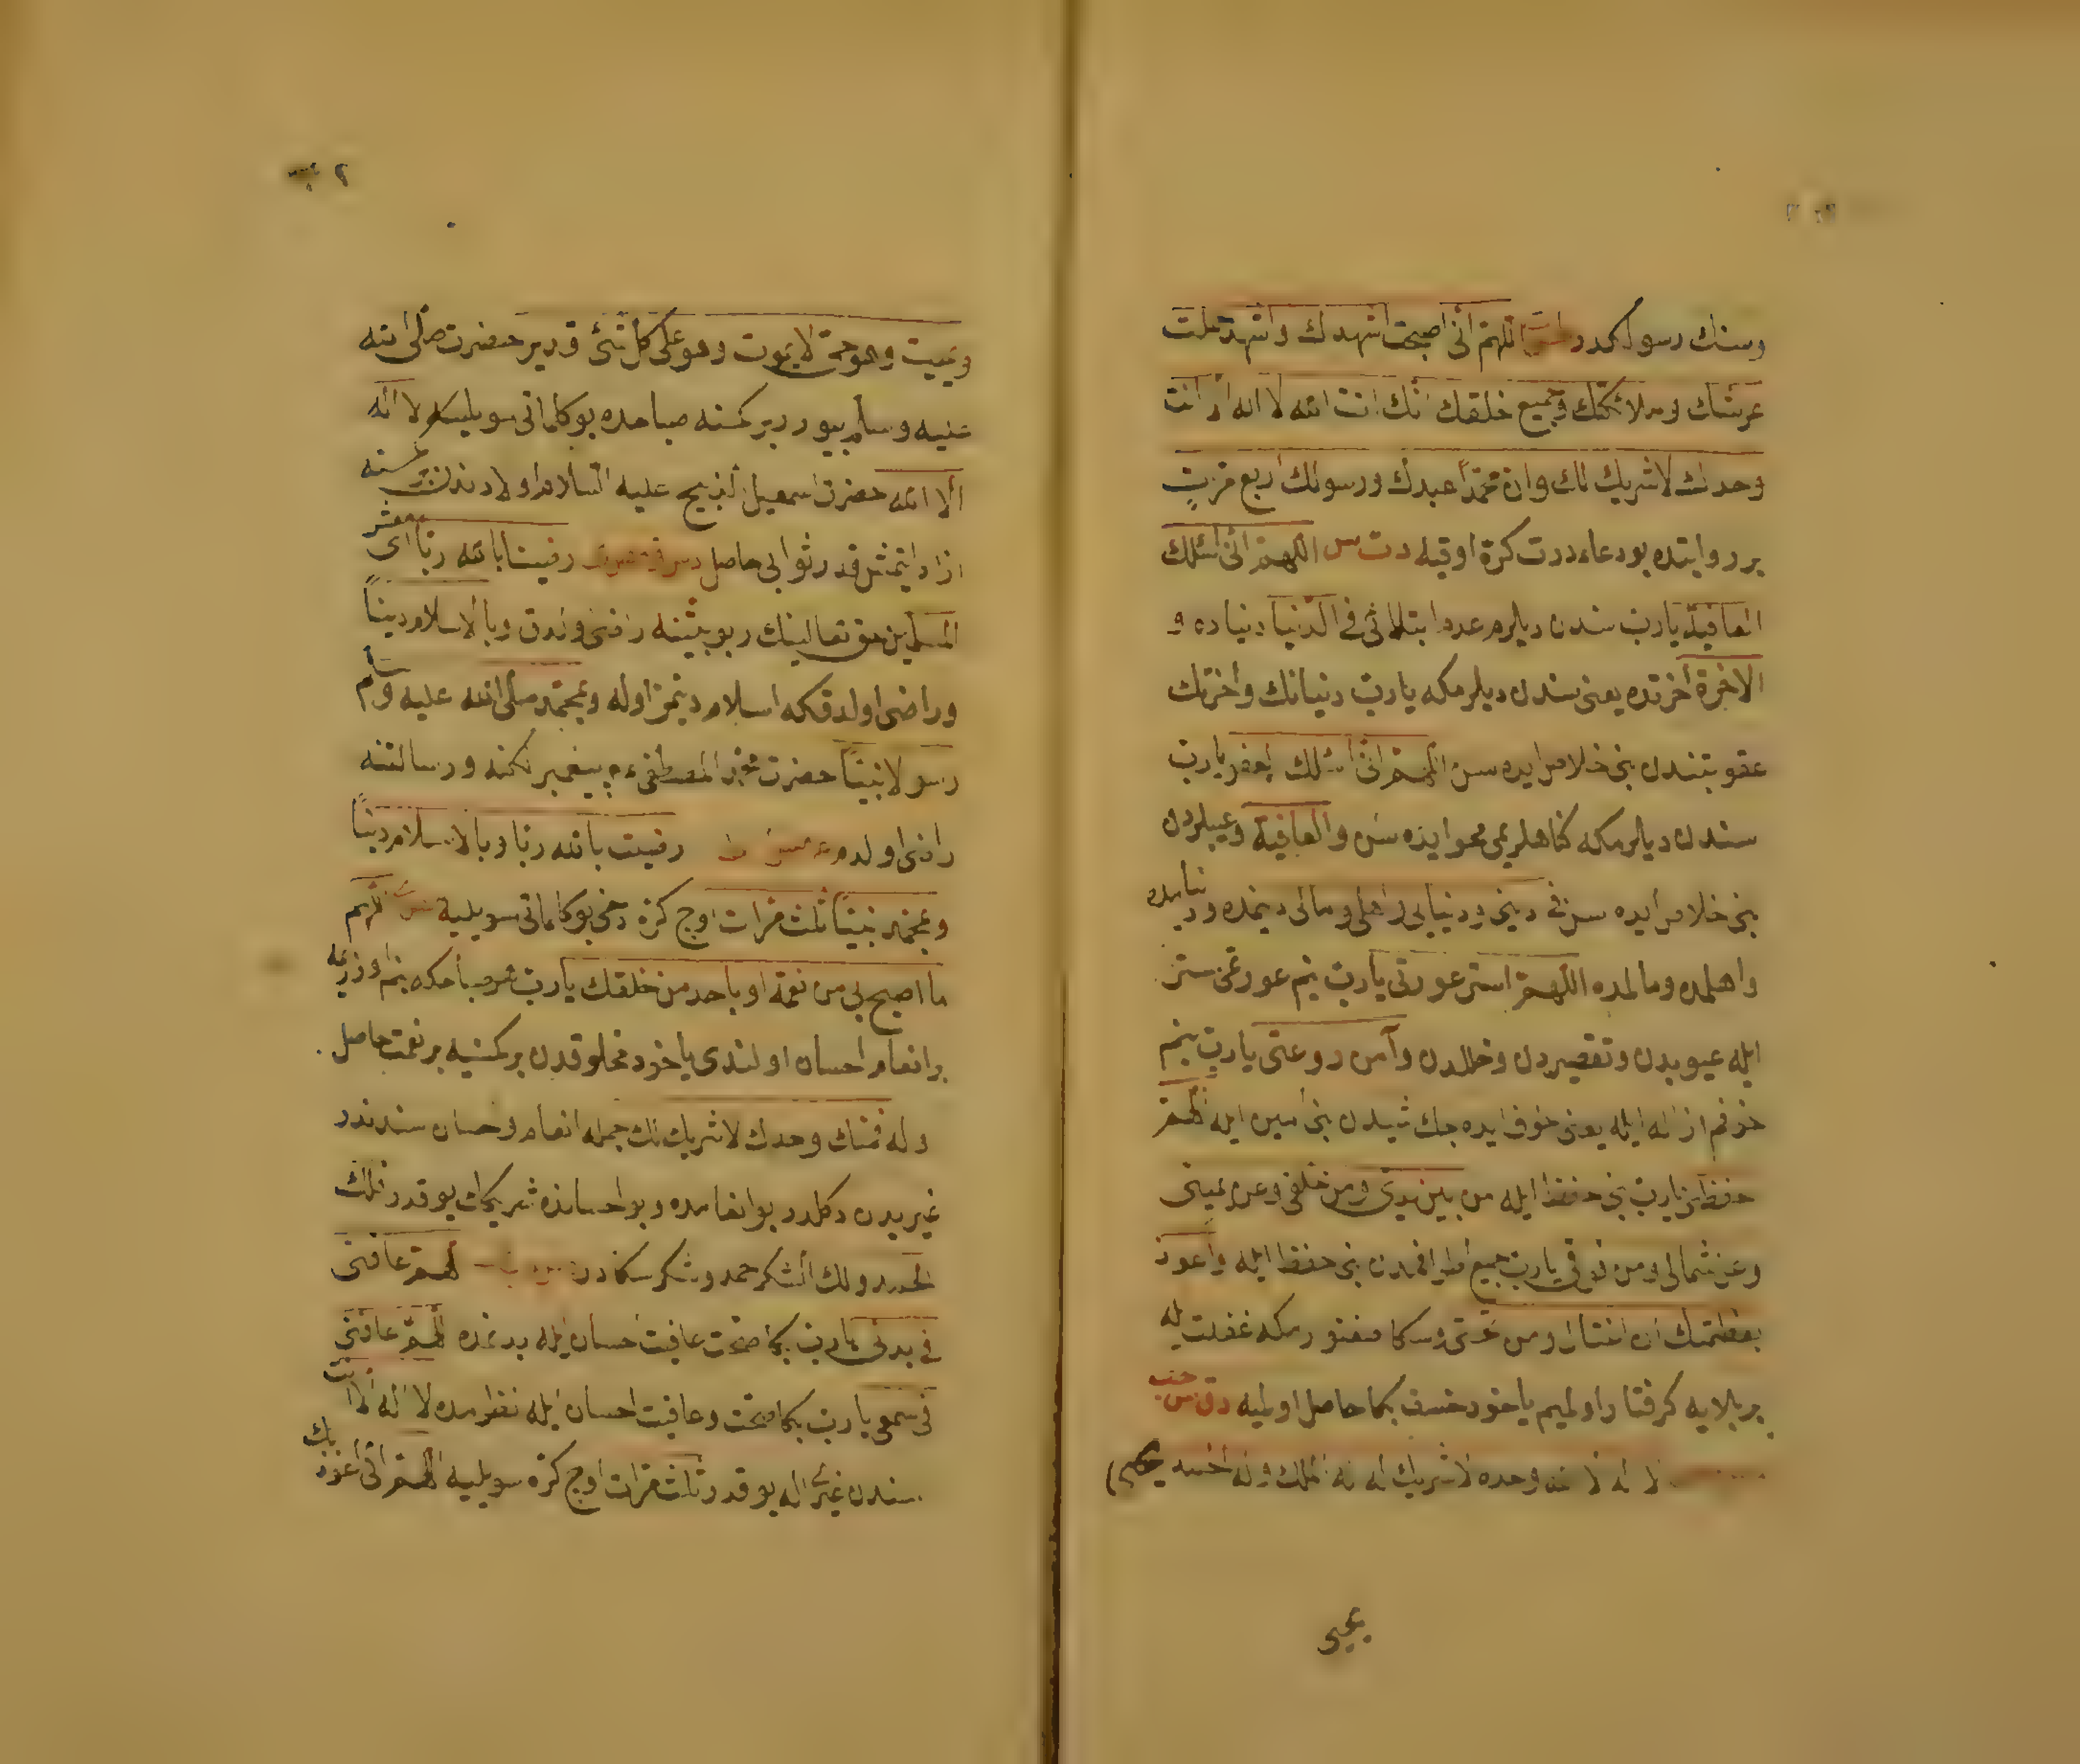 وسنك رسولكدر اللهم انى اصبحت اشهدك واشهد حملت
عرشك وملائكتك وجميع خلقك انك انت الله لا اله الا انت
وحدك لا شريك لك وان محمدا عبدك ورسولك اربع مرات
بر روايتده بو دعاء درت كرة اوقيه دت س اللهم انى اسئلك
العافية يارب سندن ديلرم عدم ابتلائى فى الدنيا دنياده و
الاخرة اخرتده يعنى سندن ديلرمكه يارب دنيانك واخرتك
عقوبتندن بنى خلاص ايده سن اللهم انى اسئلك العفو يارب
سندن ديلرمكه كناهلريمى محو ايده سن والعافية وعيبلردن
بنى خلاص ايده سن فى دينى ودنياى واهلى ومالى دينمده ودنيامده
واهلمده ومالمده اللهم استر عورتى يارب بنم عورتمى ستر
ايله عيوبدن وتقصيردن وخللدن وآمن روعتى يارب بنم
خوفم ازاله ايله يعنى خوف ايده جك شيدن بنى امين ايله اللهم
احفظنى يارب بنى حفظ ايله من بين يدى ومن خلفى وعن يمينى
وعن شمالى ومن فوقى يارب جميع اطرافمدن بنى حفظ ايله واعوذ
بعظمتك ان اغتال من تحتى وسكا صغنورمكه غفلت ايله
بر بلايه كرفتار اولميم ياخود خسف بكا حاصل اولميه دق مس حب
لا اله الا الله وحده لا شريك له له الملك وله الحمد يحيى
يحيى
ويميت وهو حى لا يموت وهو على كل شئ قدير حضرت صلى الله
عليه وسلم بيورر بر كمسنه صباحده بو كلماتى سويليسه لا اله
الا الله حضرت اسمعيل الذبيح عليه السلام اولادندن بر كمسنه
ازاد ايتمش قدر ثوابى حاصل رضينا بالله ربا اى معشر
المسلمين حق تعالينك ربوبيتنه راضى اولدق وبالاسلام دينا
وراضى اولدقكه اسلام دينمز اوله وبمحمد صلى الله عليه وسلم
رسولا نبيا حضرت محمد المصطفى پيغمبرلكنه ورسالتنه
راضى اولدم رضيت بالله ربا وبالاسلام دينا
وبمحمد نبيا ثلث مرات اوج كرة دخى بو كلماتى سويليه اللهم
ما اصبح بى من نعمة او باحد من خلقك يارب هر صباحكه بنم اوزريمه
بر انعام احسان اولندى ياخود مخلوقدن بر كمسنيه بر نعمت حاصل
اوله فمنك وحدك لا شريك لك جمله انعام واحسان سندندر
غيريدن دكلدر بو انعامده وبو احسانده شريكك يوقدر فلك
الحمد ولك الشكر حمد وشكر سكادر اللهم عافنى
فى بدنى يارب بكا صحت عافيت احسان ايله بدنمده اللهم عافنى
فى سمعى يارب بكا صحت وعافيت احسان ايله لا اله الا انت
سندن غيرى اله يوقدر ثلث مرات اوج كره سويليه اللهم انى اعوذ بك